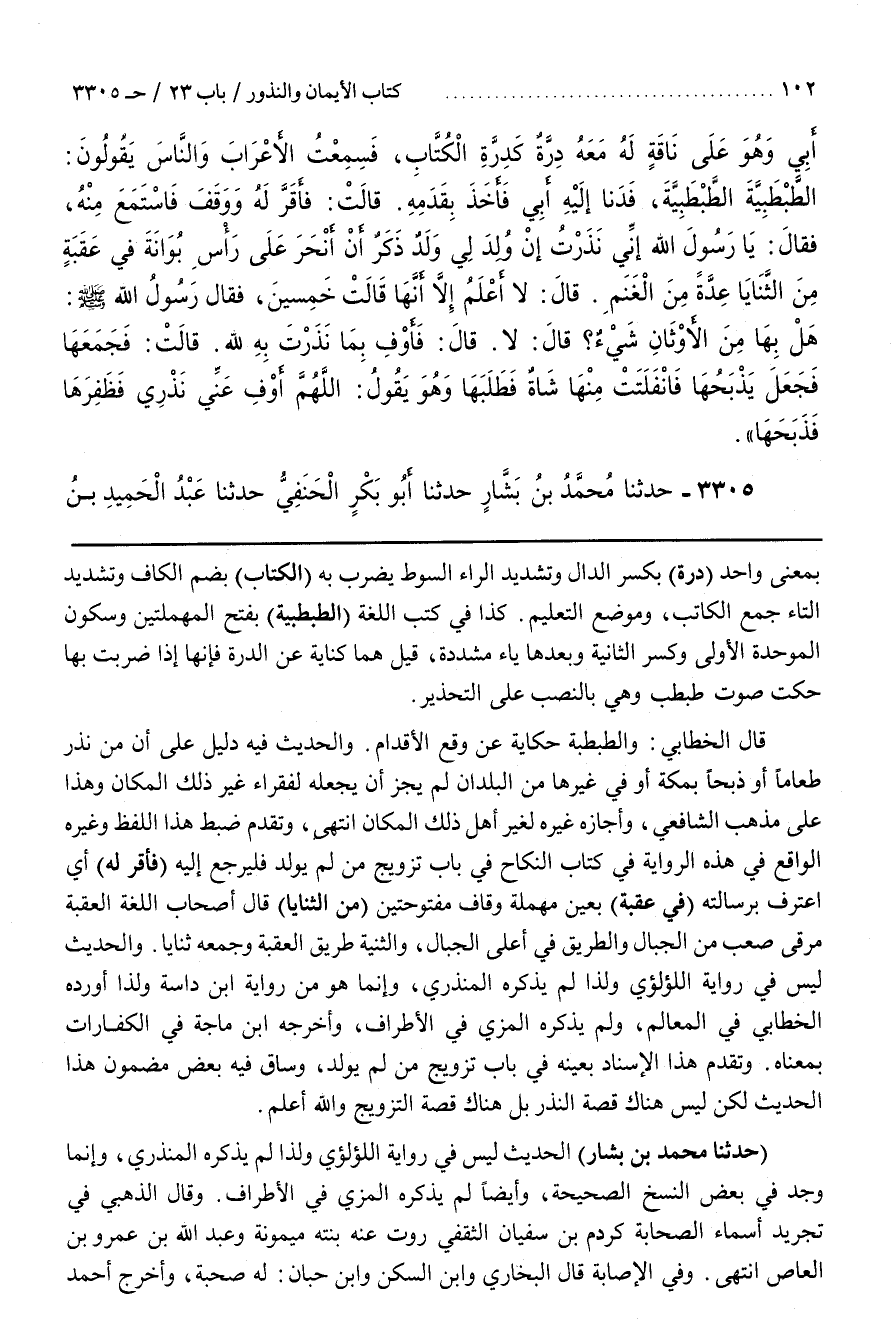 ١٠٢ ..................................... كتاب الأيمان والنذور / باب ٢٣ / حـ ٣٣٠٥
أَبِي وَهُوَ عَلَى نَاقَةٍ لَهُ مَعَهُ دِرَّةٌ كَدِرَّةِ الْكُتَّابِ، فَسِمِعْتُ الأَعْرَابَ وَالنَّاسَ يَقُولُونَ:
الطَّبْطَبِيَّةَ الطَّبْطَبِيَّةَ، فَدَنا إلَيْهِ أَبي فَأَخَذَ بِقَدَمِهِ. قالَتْ: فأَقَرَّ لَهُ وَوَقَفَ فَاسْتَمَعَ مِنْهُ،
فقالَ: يَا رَسُولَ الله إنِّي نَذَرْتُ إنْ وُلِدَ لِي وَلَدٌ ذَكَرٌ أَنْ أَنْحَرَ عَلَى رَأْسِ بُوَانَةَ في عَقَبَةٍ
مِنَ الثَّنَايَا عِدَّةً مِنَ الْغَنَمِ. قالَ: لا أَعْلَمُ إلَّا أَنَّهَا قَالَتْ خَمْسِينَ، فقال رَسُولُ الله ﷺ:
هَلْ بِهَا مِنَ الأَوْثَانِ شَيْءٌ؟ قالَ: لا. قالَ: فَأَوْفِ بِمَا نَذَرْتَ بِهِ لله. قالَتْ: فَجَمَعَهَا
فَجَعَلَ يَذْبَحُهَا فَانْفَلَتَتْ مِنْهَا شَاةٌ فَطَلَبَهَا وَهُوَ يَقُولُ: اللَّهُمَّ أَوْفِ عَنِّي نَذْرِي فَظَفِرَهَا
فَذَبَحَهَا».
٣٣٠٥ ـ حدثنا مُحمَّدُ بنُ بَشَّارٍ حدثنا أَبُو بَكْرٍ الْحَنَفِيُّ حدثنا عَبْدُ الْحَمِيدِ بـنُ
بمعنى واحد (درة) بكسر الدال وتشديد الراء السوط يضرب به (الكتاب) بضم الكاف وتشديد
التاء جمع الكاتب، وموضع التعليم. كذا في كتب اللغة (الطبطبية) بفتح المهملتين وسكون
الموحدة الأولى وكسر الثانية وبعدها ياء مشددة، قيل هما كناية عن الدرة فإنها إذا ضربت بها
حكت صوت طبطب وهي بالنصب على التحذير.
قال الخطابي: والطبطبة حكاية عن وقع الأقدام. والحديث فيه دليل على أن من نذر
طعاماً أو ذبحاً بمكة أو في غيرها من البلدان لم يجز أن يجعله لفقراء غير ذلك المكان وهذا
على مذهب الشافعي، وأجازه غيره لغير أهل ذلك المكان انتهى، وتقدم ضبط هذا اللفظ وغيره
الواقع في هذه الرواية في كتاب النكاح في باب تزويج من لم يولد فليرجع إليه (فأقر له) أي
اعترف برسالته (في عقبة) بعين مهملة وقاف مفتوحتين (من الثنايا) قال أصحاب اللغة العقبة
مرقى صعب من الجبال والطريق في أعلى الجبال، والثنية طريق العقبة وجمعه ثنايا. والحديث
ليس في رواية اللؤلؤي ولذا لم يذكره المنذري، وإنما هو من رواية ابن داسة ولذا أورده
الخطابي في المعالم، ولم يذكره المزي في الأطراف، وأخرجه ابن ماجة في الكفـارات
بمعناه. وتقدم هذا الإسناد بعينه في باب تزويج من لم يولد، وساق فيه بعض مضمون هذا
الحديث لكن ليس هناك قصة النذر بل هناك قصة التزويج والله أعلم.
(حدثنا محمد بن بشار) الحديث ليس في رواية اللؤلؤي ولذا لم يذكره المنذري، وإنما
وجد في بعض النسخ الصحيحة، وأيضاً لم يذكره المزي في الأطراف. وقال الذهبي في
تجريد أسماء الصحابة كردم بن سفيان الثقفي روت عنه بنته ميمونة وعبد الله بن عمرو بن
العاص انتهى. وفي الإصابة قال البخاري وابن السكن وابن حبان: له صحبة، وأخرج أحمد